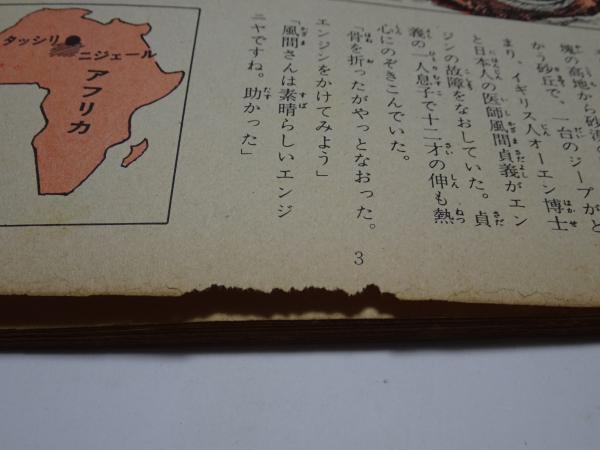 塊の高地から砂漠の
かう砂丘で、一台のジープがと
まり、イギリス人オーエン博士
と日本人の医師風間貞義がエン
ジンの故障をなおしていた。貞
義の一人息子で十二才の伸も熱
心にのぞきこんでいた。
「骨を折ったがやっとなおった。
エンジンをかけてみよう」
「風間さんは素晴らしいエンジ
ニヤですね。助かった」
タッシリ
ニジェール
アフリカ
3